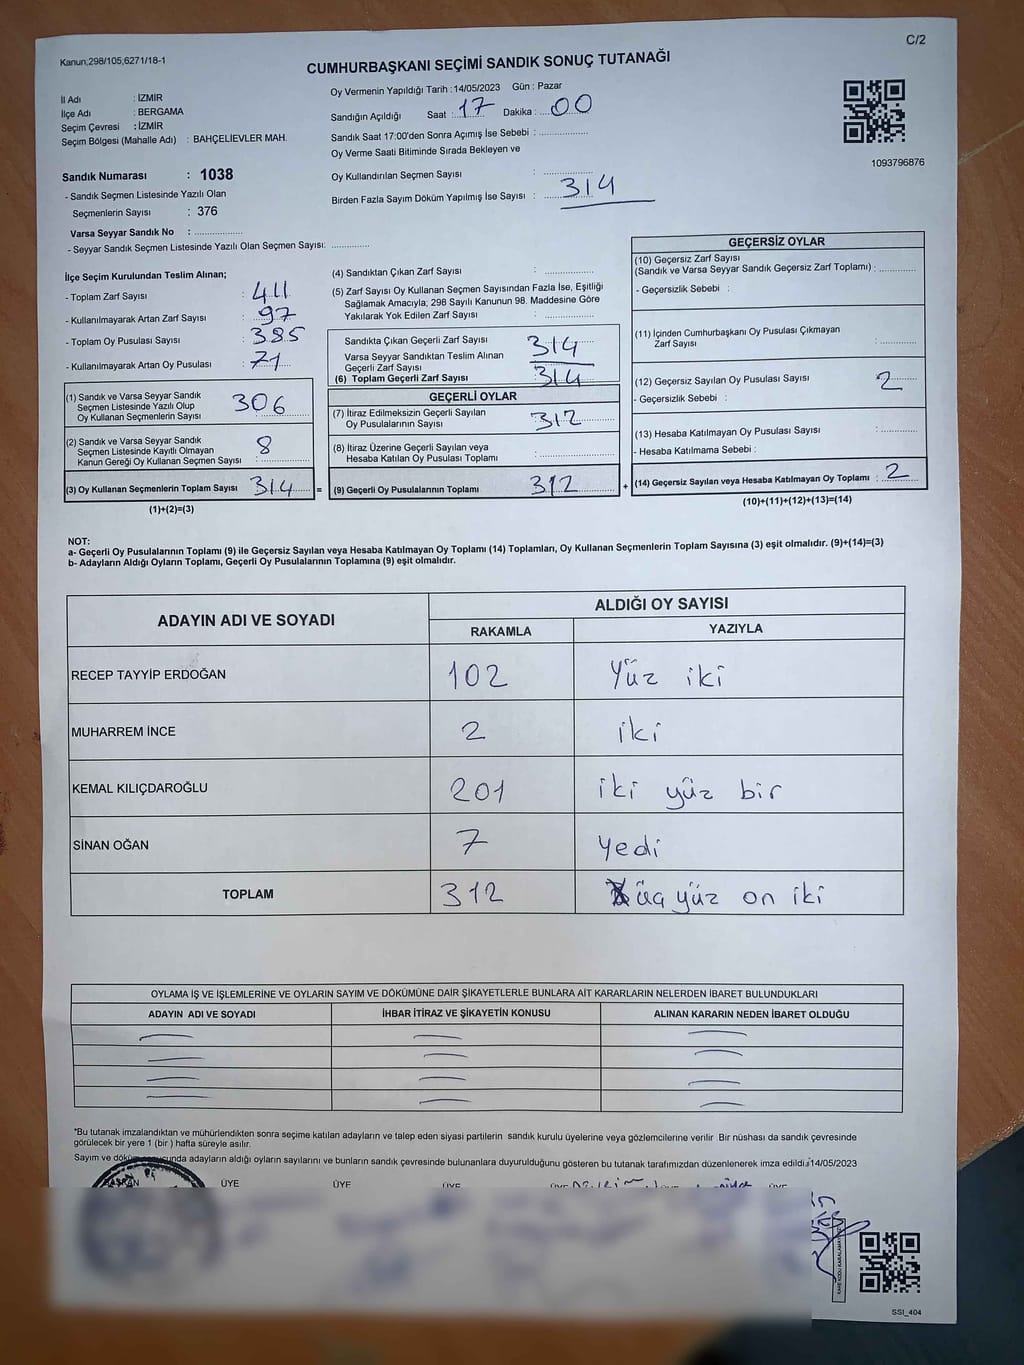 C/2
Kanun;298/105;6271/18-1
CUMHURBAŞKANI SEÇİMİ SANDIK SONUÇ TUTANAĞI
İl Adı : İZMİR
İlçe Adı : BERGAMA
Seçim Çevresi : İZMİR
Seçim Bölgesi (Mahalle Adı) : BAHÇELİEVLER MAH.
Oy Vermenin Yapıldığı Tarih : 14/05/2023 Gün : Pazar
Sandığın Açıldığı Saat : 17 Dakika : 00
Sandık Saat 17:00'den Sonra Açımış İse Sebebi :
Oy Verme Saati Bitiminde Sırada Bekleyen ve
Oy Kullandırılan Seçmen Sayısı :
Birden Fazla Sayım Döküm Yapılmış İse Sayısı : 314
1093796876
Sandık Numarası : 1038
- Sandık Seçmen Listesinde Yazılı Olan
Seçmenlerin Sayısı : 376
Varsa Seyyar Sandık No :
- Seyyar Sandık Seçmen Listesinde Yazılı Olan Seçmen Sayısı:
İlçe Seçim Kurulundan Teslim Alınan;
- Toplam Zarf Sayısı : 411
- Kullanılmayarak Artan Zarf Sayısı : 97
- Toplam Oy Pusulası Sayısı : 385
- Kullanılmayarak Artan Oy Pusulası : 71
(1) Sandık ve Varsa Seyyar Sandık
Seçmen Listesinde Yazılı Olup
Oy Kullanan Seçmenlerin Sayısı : 306
(2) Sandık ve Varsa Seyyar Sandık
Seçmen Listesinde Kayıtlı Olmayan
Kanun Gereği Oy Kullanan Seçmen Sayısı : 8
(3) Oy Kullanan Seçmenlerin Toplam Sayısı : 314 =
(1)+(2)=(3)
(4) Sandıktan Çıkan Zarf Sayısı :
(5) Zarf Sayısı Oy Kullanan Seçmen Sayısından Fazla İse, Eşitliği
Sağlamak Amacıyla; 298 Sayılı Kanunun 98. Maddesine Göre
Yakılarak Yok Edilen Zarf Sayısı :
Sandıkta Çıkan Geçerli Zarf Sayısı 314
Varsa Seyyar Sandıktan Teslim Alınan
Geçerli Zarf Sayısı
(6) Toplam Geçerli Zarf Sayısı 314
GEÇERLİ OYLAR
(7) İtiraz Edilmeksizin Geçerli Sayılan
Oy Pusulalarının Sayısı : 312
(8) İtiraz Üzerine Geçerli Sayılan veya
Hesaba Katılan Oy Pusulası Toplamı :
(9) Geçerli Oy Pusulalarının Toplamı 312 +
GEÇERSİZ OYLAR
(10) Geçersiz Zarf Sayısı
(Sandık ve Varsa Seyyar Sandık Geçersiz Zarf Toplamı) :
- Geçersizlik Sebebi :
(11) İçinden Cumhurbaşkanı Oy Pusulası Çıkmayan
Zarf Sayısı :
(12) Geçersiz Sayılan Oy Pusulası Sayısı : 2
- Geçersizlik Sebebi :
(13) Hesaba Katılmayan Oy Pusulası Sayısı :
- Hesaba Katılmama Sebebi :
(14) Geçersiz Sayılan veya Hesaba Katılmayan Oy Toplamı : 2
(10)+(11)+(12)+(13)=(14)
NOT:
a- Geçerli Oy Pusulalarının Toplamı (9) ile Geçersiz Sayılan veya Hesaba Katılmayan Oy Toplamı (14) Toplamları, Oy Kullanan Seçmenlerin Toplam Sayısına (3) eşit olmalıdır. (9)+(14)=(3)
b- Adayların Aldığı Oyların Toplamı, Geçerli Oy Pusulalarının Toplamına (9) eşit olmalıdır.
ADAYIN ADI VE SOYADI ALDIĞI OY SAYISI
RAKAMLA YAZIYLA
RECEP TAYYİP ERDOĞAN 102 Yüz iki
MUHARREM İNCE 2 iki
KEMAL KILIÇDAROĞLU 201 iki yüz bir
SİNAN OĞAN 7 Yedi
TOPLAM 312 üç yüz on iki
OYLAMA İŞ VE İŞLEMLERİNE VE OYLARIN SAYIM VE DÖKÜMÜNE DAİR ŞİKAYETLERLE BUNLARA AİT KARARLARIN NELERDEN İBARET BULUNDUKLARI
ADAYIN ADI VE SOYADI İHBAR İTİRAZ VE ŞİKAYETİN KONUSU ALINAN KARARIN NEDEN İBARET OLDUĞU
*Bu tutanak imzalandıktan ve mühürlendikten sonra seçime katılan adayların ve talep eden siyasi partilerin sandık kurulu üyelerine veya gözlemcilerine verilir. Bir nüshası da sandık çevresinde
görülecek bir yere 1 (bir ) hafta süreyle asılır.
Sayım ve döküm adayların aldığı oyların sayılarını ve bunların sandık çevresinde bulunanlara duyurulduğunu gösteren bu tutanak tarafımızdan düzenlenerek imza edildi.14/05/2023
BAŞKAN ÜYE ÜYE ÜYE ÜYE ÜYE
SSI_404